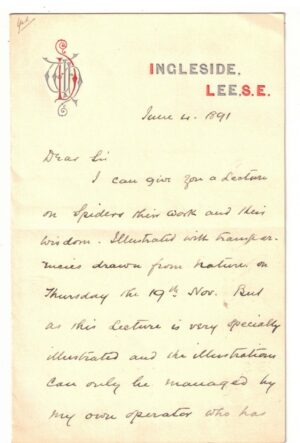 INGLESIDE,
LEE, S.E.
June 4. 1891
Dear Sir
I can give you a Lecture
on Spiders their work and their
wisdom. Illustrated with transpar-
encies drawn from nature, on
Thursday the 19th Nov. But
as this Lecture is very specially
illustrated and the illustrations
can only be managed by
my own operator who has